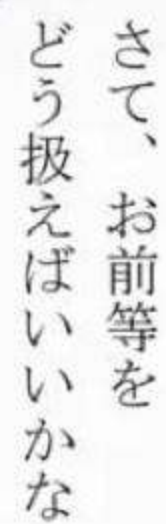 さて、お前等を
どう扱えばいいかな